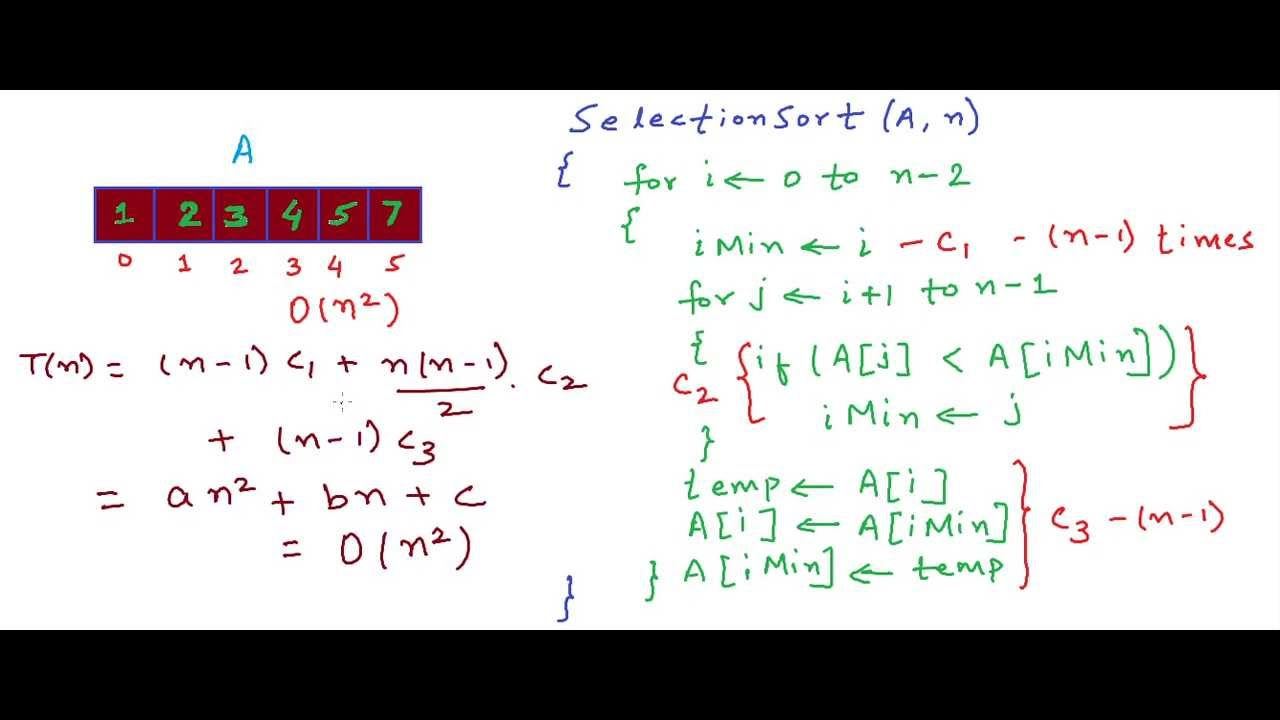 A
1 2 3 4 5 7
0 1 2 3 4 5
O(n²)
T(n) = (n-1) c₁ + n(n-1)/2 . c₂
+ (n-1) c₃
= an² + bn + c
= O(n²)
SelectionSort (A, n)
{ for i ← 0 to n-2
{
iMin ← i - c₁ - (n-1) times
for j ← i+1 to n-1
{
c₂ { if (A[j] < A[iMin]) }
iMin ← j
}
temp ← A[i]
A[i] ← A[iMin] } c₃ - (n-1)
} A[iMin] ← temp
}